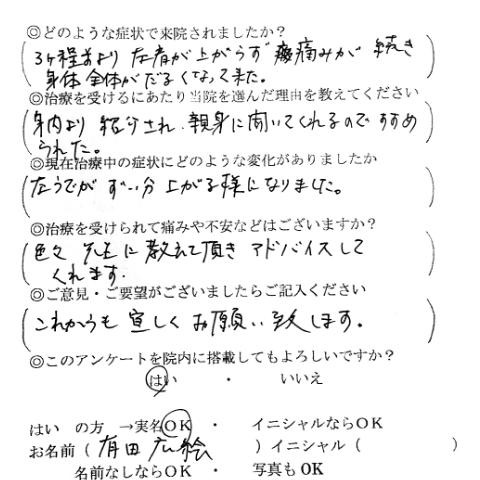 ◎どのような症状で来院されましたか？
(3ヶ程前より 左肩が上がらず 痛みが 続き
身体全体がだるくなって来た。)
◎治療を受けるにあたり当院を選んだ理由を教えてください
(身内より 紹介され、親身に聞いてくれるので すすめ
られた。)
◎現在治療中の症状にどのような変化がありましたか
(左うでが ずい分 上がる様になりました。)
◎治療を受けられて痛みや不安などはございますか？
(色々 先生に教えて頂き アドバイスして
くれます.)
◎ご意見・ご要望がございましたらご記入ください
(これからも 宜しく お願い致します。)
◎このアンケートを院内に搭載してもよろしいですか？
はい ・ いいえ
はい の方 →実名OK ・ イニシャルならOK
お名前 ( 有田 広絵 ) イニシャル ( )
名前なしならOK ・ 写真も OK